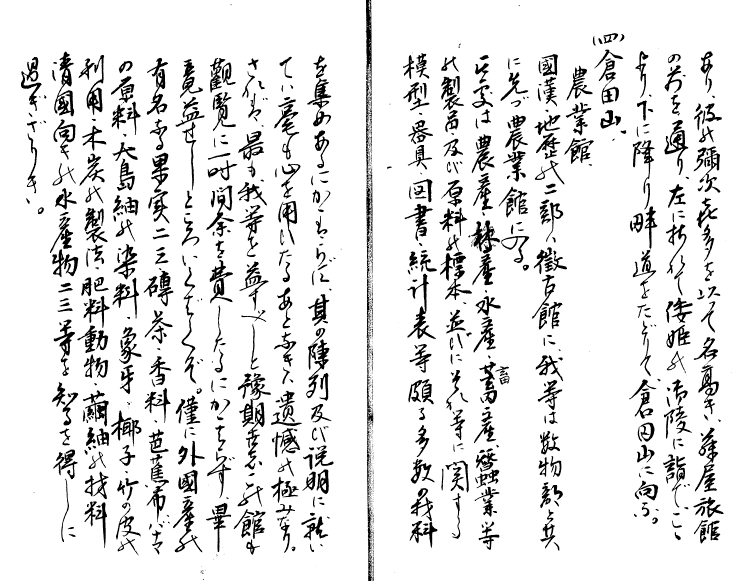 あり、彼の彌次喜多を以て名高き、藤屋旅館
の前を通り左に折れて倭姫の御陵に詣でこゝ
より、下に降り畔道をたどりて、倉田山に向ふ。
(四)倉田山、
農業館、
國漢、地歴の二部、徴古館に、我等は数物部と共
に先づ農業館に入る。
こゝ処は農産、林産、水産、畜蓄産、蠶業等
の製品及び原料の標本、並びにそれ等に関する
模型・器具・図書・統計表等頗る多数の材料
を集めあるにかゝはらず、其の陳列及び説明に就い
てい毫も心を用ひたるあとなきハ遺憾の極みなり。
されば、最も我等を益すべしと豫期せるこの館も
觀覽に一時間余を費したるにかゝはらず、畢
竟益せしところいくばくぞ。僅に外國産の
有名なる果実二三、磚茶、香料、芭蕉布、バナナ
の原料、大島紬の染料、象牙、椰子、竹の皮の
利用、木炭の製法、肥料動物、繭紬の材料
清國向きの水産物二三等を知るを得しに
過ぎざりき。